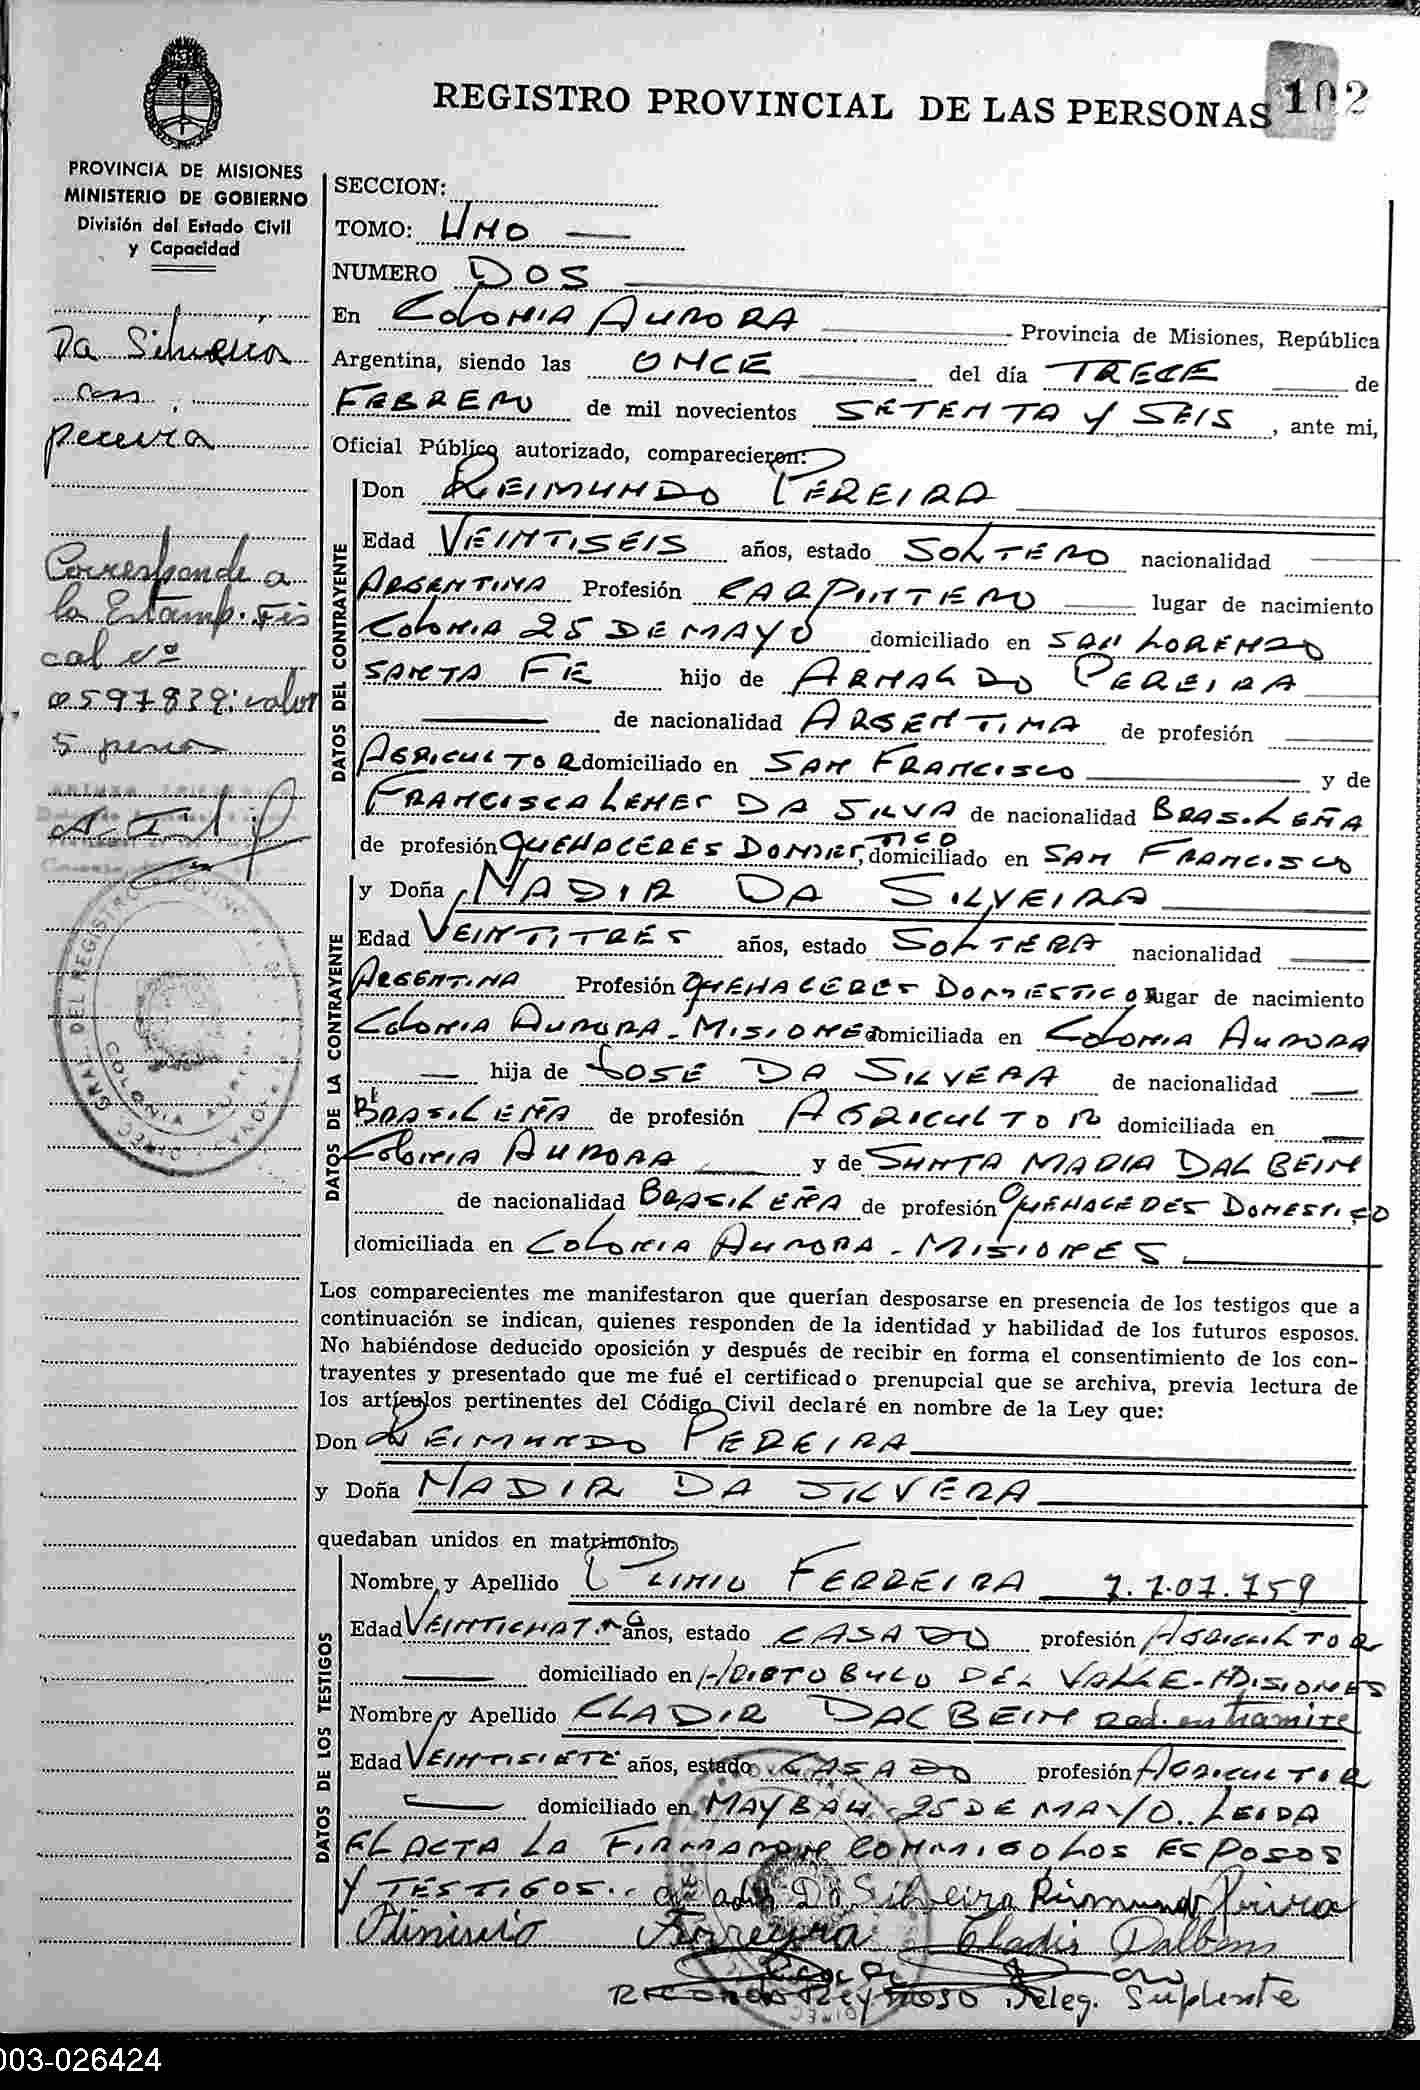 REGISTRO PROVINCIAL DE LAS PERSONAS 102
PROVINCIA DE MISIONES
MINISTERIO DE GOBIERNO
División del Estado Civil
y Capacidad
Da Silveira
con
pereira
Corresponde a
la Estamp. Fis
cal nº
0597839: valor
5 pesos
SECCION:
TOMO: UNO
NUMERO DOS
En COLONIA AURORA Provincia de Misiones, República
Argentina, siendo las ONCE del día TRECE de
FEBRERO de mil novecientos SETENTA Y SEIS, ante mi,
Oficial Público autorizado, comparecieron:
DATOS DEL CONTRAYENTE
Don REIMUNDO PEREIRA
Edad VEINTISEIS años, estado SOLTERO nacionalidad
ARGENTINA Profesión CARPINTERO lugar de nacimiento
COLONIA 25 DE MAYO domiciliado en SAN LORENZO
SANTA FE hijo de ARNALDO PEREIRA
de nacionalidad ARGENTINA de profesión
AGRICULTOR domiciliado en SAN FRANCISCO y de
FRANCISCA LEMES DA SILVA de nacionalidad BRASILEÑA
de profesión QUEHACERES DOMESTICO, domiciliado en SAN FRANCISCO
DATOS DE LA CONTRAYENTE
y Doña NADIR DA SILVEIRA
Edad VEINTITRES años, estado SOLTERA nacionalidad
ARGENTINA Profesión QUEHACERES DOMESTICO lugar de nacimiento
COLONIA AURORA - MISIONES domiciliada en COLONIA AURORA
hija de JOSE DA SILVERA de nacionalidad
BRASILEÑA de profesión AGRICULTOR domiciliada en
COLONIA AURORA y de SUNTA MARIA DAL BEIM
de nacionalidad BRASILEÑA de profesión QUEHACERES DOMESTICO
domiciliada en COLONIA AURORA - MISIONES
Los comparecientes me manifestaron que querían desposarse en presencia de los testigos que a
continuación se indican, quienes responden de la identidad y habilidad de los futuros esposos.
No habiéndose deducido oposición y después de recibir en forma el consentimiento de los con-
trayentes y presentado que me fué el certificado prenupcial que se archiva, previa lectura de
los artículos pertinentes del Código Civil declaré en nombre de la Ley que:
Don REIMUNDO PEREIRA
y Doña NADIR DA SILVERA
quedaban unidos en matrimonio,
DATOS DE LOS TESTIGOS
Nombre y Apellido PLINIO FERREIRA 7.707.759
Edad VEINTICUATRO años, estado CASADO profesión AGRICULTOR
domiciliado en ARISTOBULO DEL VALLE - MISIONES
Nombre y Apellido CLADIR DALBEIM Rad. en tramite
Edad VEINTISIETE años, estado CASADO profesión AGRICULTOR
domiciliado en 25 DE MAYO. LEIDA
EL ACTA LA FIRMARON CONMIGO LOS ESPOSOS
Y TESTIGOS.. Da Silveira
Ferreira Cladir
Reynoso Deleg. Suplente
003-026424